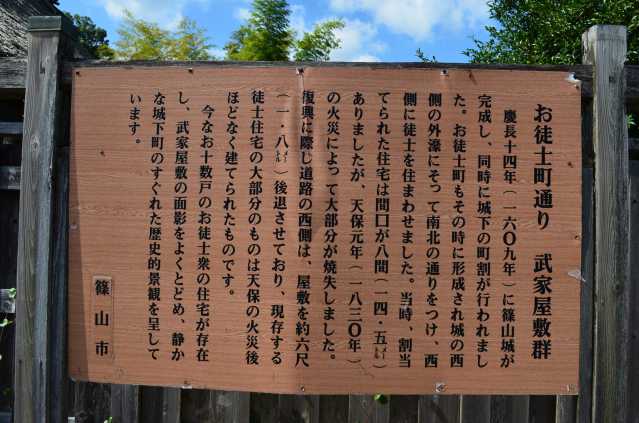 お徒士町通り　武家屋敷群
慶長十四年（一六〇九年）に篠山城が
完成し、同時に城下の町割が行われまし
た。お徒士町もその時に形成され城の西
側の外濠にそって南北の通りをつけ、西
側に徒士を住まわせました。当時、割当
てられた住宅は間口が八間（一四・五㍍）
ありましたが、天保元年（一八三〇年）
の火災によって大部分が焼失しました。
復興に際し道路の西側は、屋敷を約六尺
（一・八㍍）後退させており、現存する
徒士住宅の大部分のものは天保の火災後
ほどなく建てられたものです。
今なお十数戸のお徒士衆の住宅が存在
し、武家屋敷の面影をよくとどめ、静か
な城下町のすぐれた歴史的景観を呈して
います。
篠山市